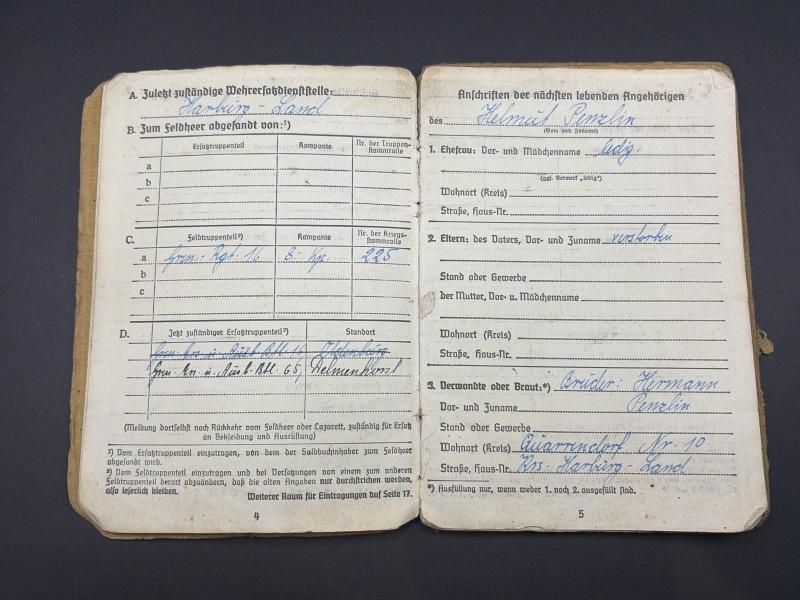 A. Zuletzt zuständige Wehrersatzdienststelle:
Harburg - Land
B. Zum Feldheer abgesandt von:¹)
Ersatztruppenteil
Kompanie
Nr. der Truppen-
stammrolle
a
b
c
C.
Feldtruppenteil²)
Kompanie
Nr. der Kriegs-
stammrolle
a Gren.- Rgt. 16 8. Kp. 225
b
c
D.
Jetzt zuständiger Ersatztruppenteil²)
Standort
Gren. Ers. u. Ausb. Btl. 16, Oldenburg
Gren. Ers. u. Ausb. Btl. 65, Delmenhorst
(Meldung dortselbst nach Rückkehr vom Feldheer oder Lazarett, zuständig für Ersatz
an Bekleidung und Ausrüstung)
¹) Vom Ersatztruppenteil einzutragen, von dem der Soldbuchinhaber zum Feldheer
abgesandt wird.
²) Vom Feldtruppenteil einzutragen und bei Versetzungen von einem zum anderen
Feldtruppenteil derart abzuändern, daß die alten Angaben nur durchstrichen werden,
also leserlich bleiben.
Weiterer Raum für Eintragungen auf Seite 17.
4
Anschriften der nächsten lebenden Angehörigen
des Helmut Penzlin
(Vor- und Zuname)
1. Ehefrau: Vor- und Mädchenname ledig.
(ggf. Vermerk „ledig")
Wohnort (Kreis)
Straße, Haus-Nr.
2. Eltern: des Vaters, Vor- und Zuname verstorben
Stand oder Gewerbe
der Mutter, Vor- u. Mädchenname
Wohnort (Kreis)
Straße, Haus-Nr.
3. Verwandte oder Braut:*) Bruder: Hermann
Vor- und Zuname Penzlin
Stand oder Gewerbe
Wohnort (Kreis) Quarrendorf Nr. 10
Straße, Haus-Nr. Krs. Harburg-Land
*) Ausfüllung nur, wenn weder 1. noch 2. ausgefüllt sind.
5